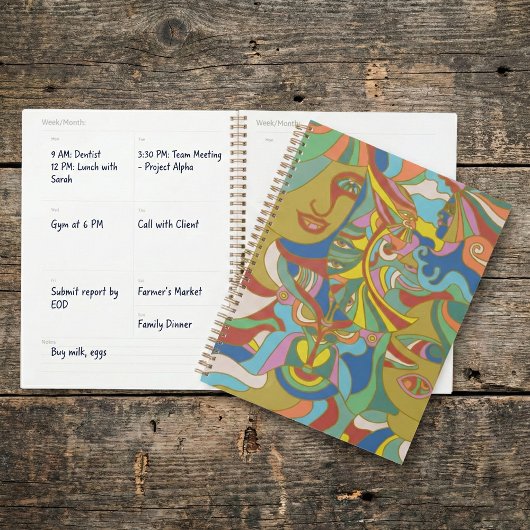 Week/Month:
Week/Month:
Mon
Tue
Mon
9 AM: Dentist
12 PM: Lunch with
Sarah
3:30 PM: Team Meeting
- Project Alpha
Wed
Thu
Gym at 6 PM
Call with Client
Fri
Sat
Submit report by
EOD
Farmer's Market
Sun
Family Dinner
Notes
Buy milk, eggs